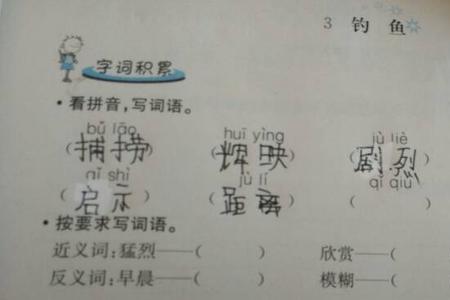 3 钓鱼
字词积累
·看拼音,写词语。
bǔ lāo huī yìng jù liè
(捕捞) (辉映) (剧烈)
qǐ shì jù lí qí qiú
(启示) (距离) ( )
·按要求写词语。
近义词:猛烈——( ) 欣赏——(
反义词:早晨——( ) 模糊——(